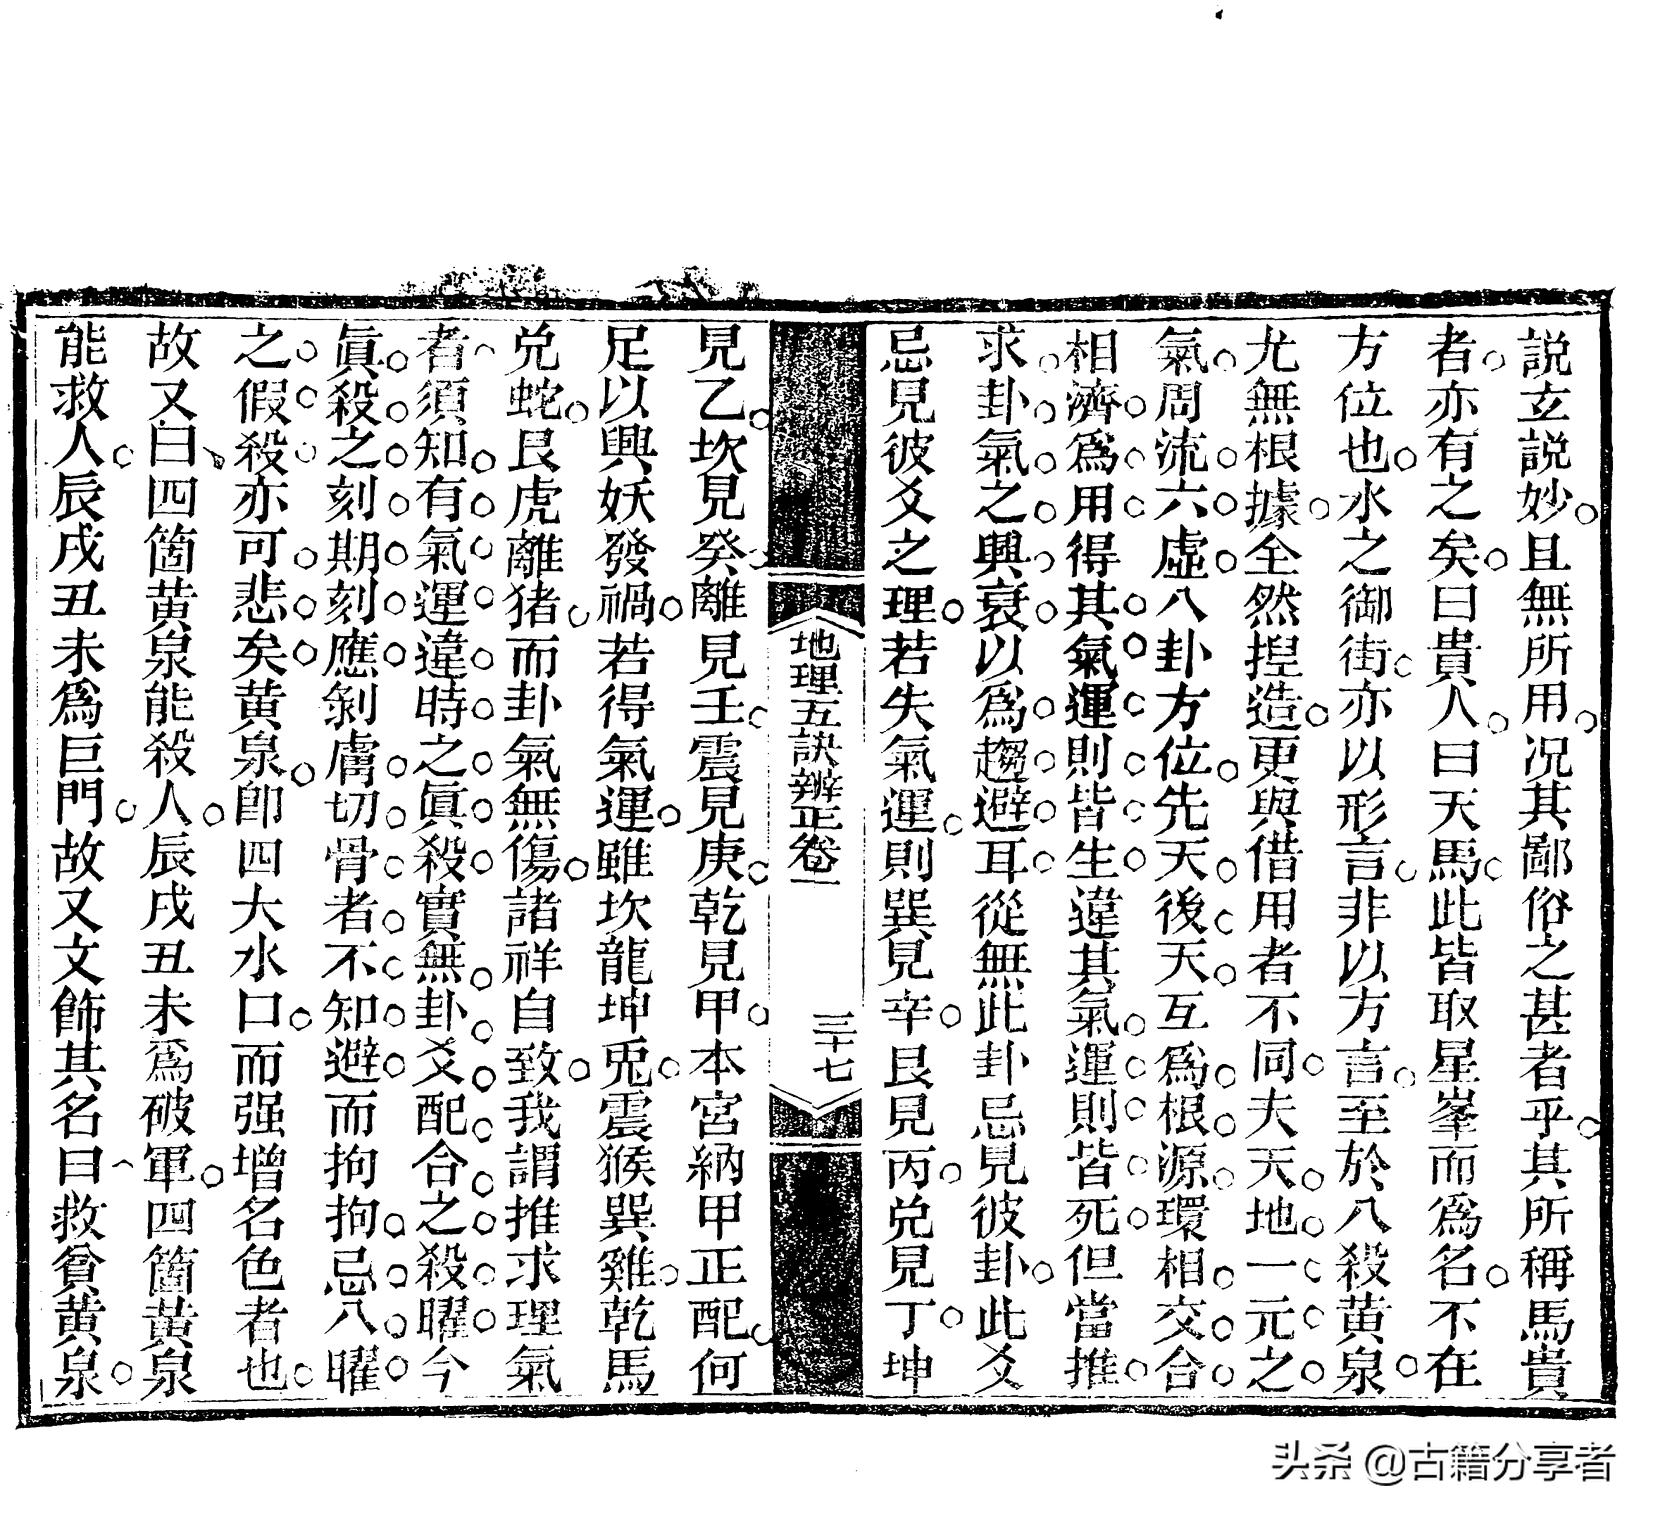 説玄説妙且無所用况其鄙俗之甚者乎其所稱馬貴
者亦有之矣曰貴人曰天馬此皆取星峯而爲名不在
方位也水之御街亦以形言非以方言至於八殺黄泉
尤無根據全然揑造更與借用者不同夫天地一元之
氣周流六虛八卦方位先天後天互爲根源環相交合
相濟爲用得其氣運則皆生違其氣運則皆死但當推
求卦氣之興衰以爲趨避耳從無此卦忌見彼卦此爻
忌見彼爻之理若失氣運則巽見辛艮見丙兑見丁坤
地理五訣辨正卷一
三十七
見乙坎見癸離見壬震見庚乾見甲本宮納甲正配何
足以興妖發禍若得氣運雖坎龍坤兎震猴巽雞乾馬
兑蛇艮虎離猪而卦氣無傷諸祥自致我謂推求理氣
者須知有氣運違時之眞殺實無卦爻配合之殺曜今
眞殺之刻期刻應剝膚切骨者不知避而拘拘忌八曜
之假殺亦可悲矣黄泉卽四大水口而强增名色者也
故又曰四箇黄泉能殺人辰戌丑未爲破軍四箇黄泉
能救人辰戌丑未爲巨門故又文飾其名曰救貧黄泉
头条 @古籍分享者